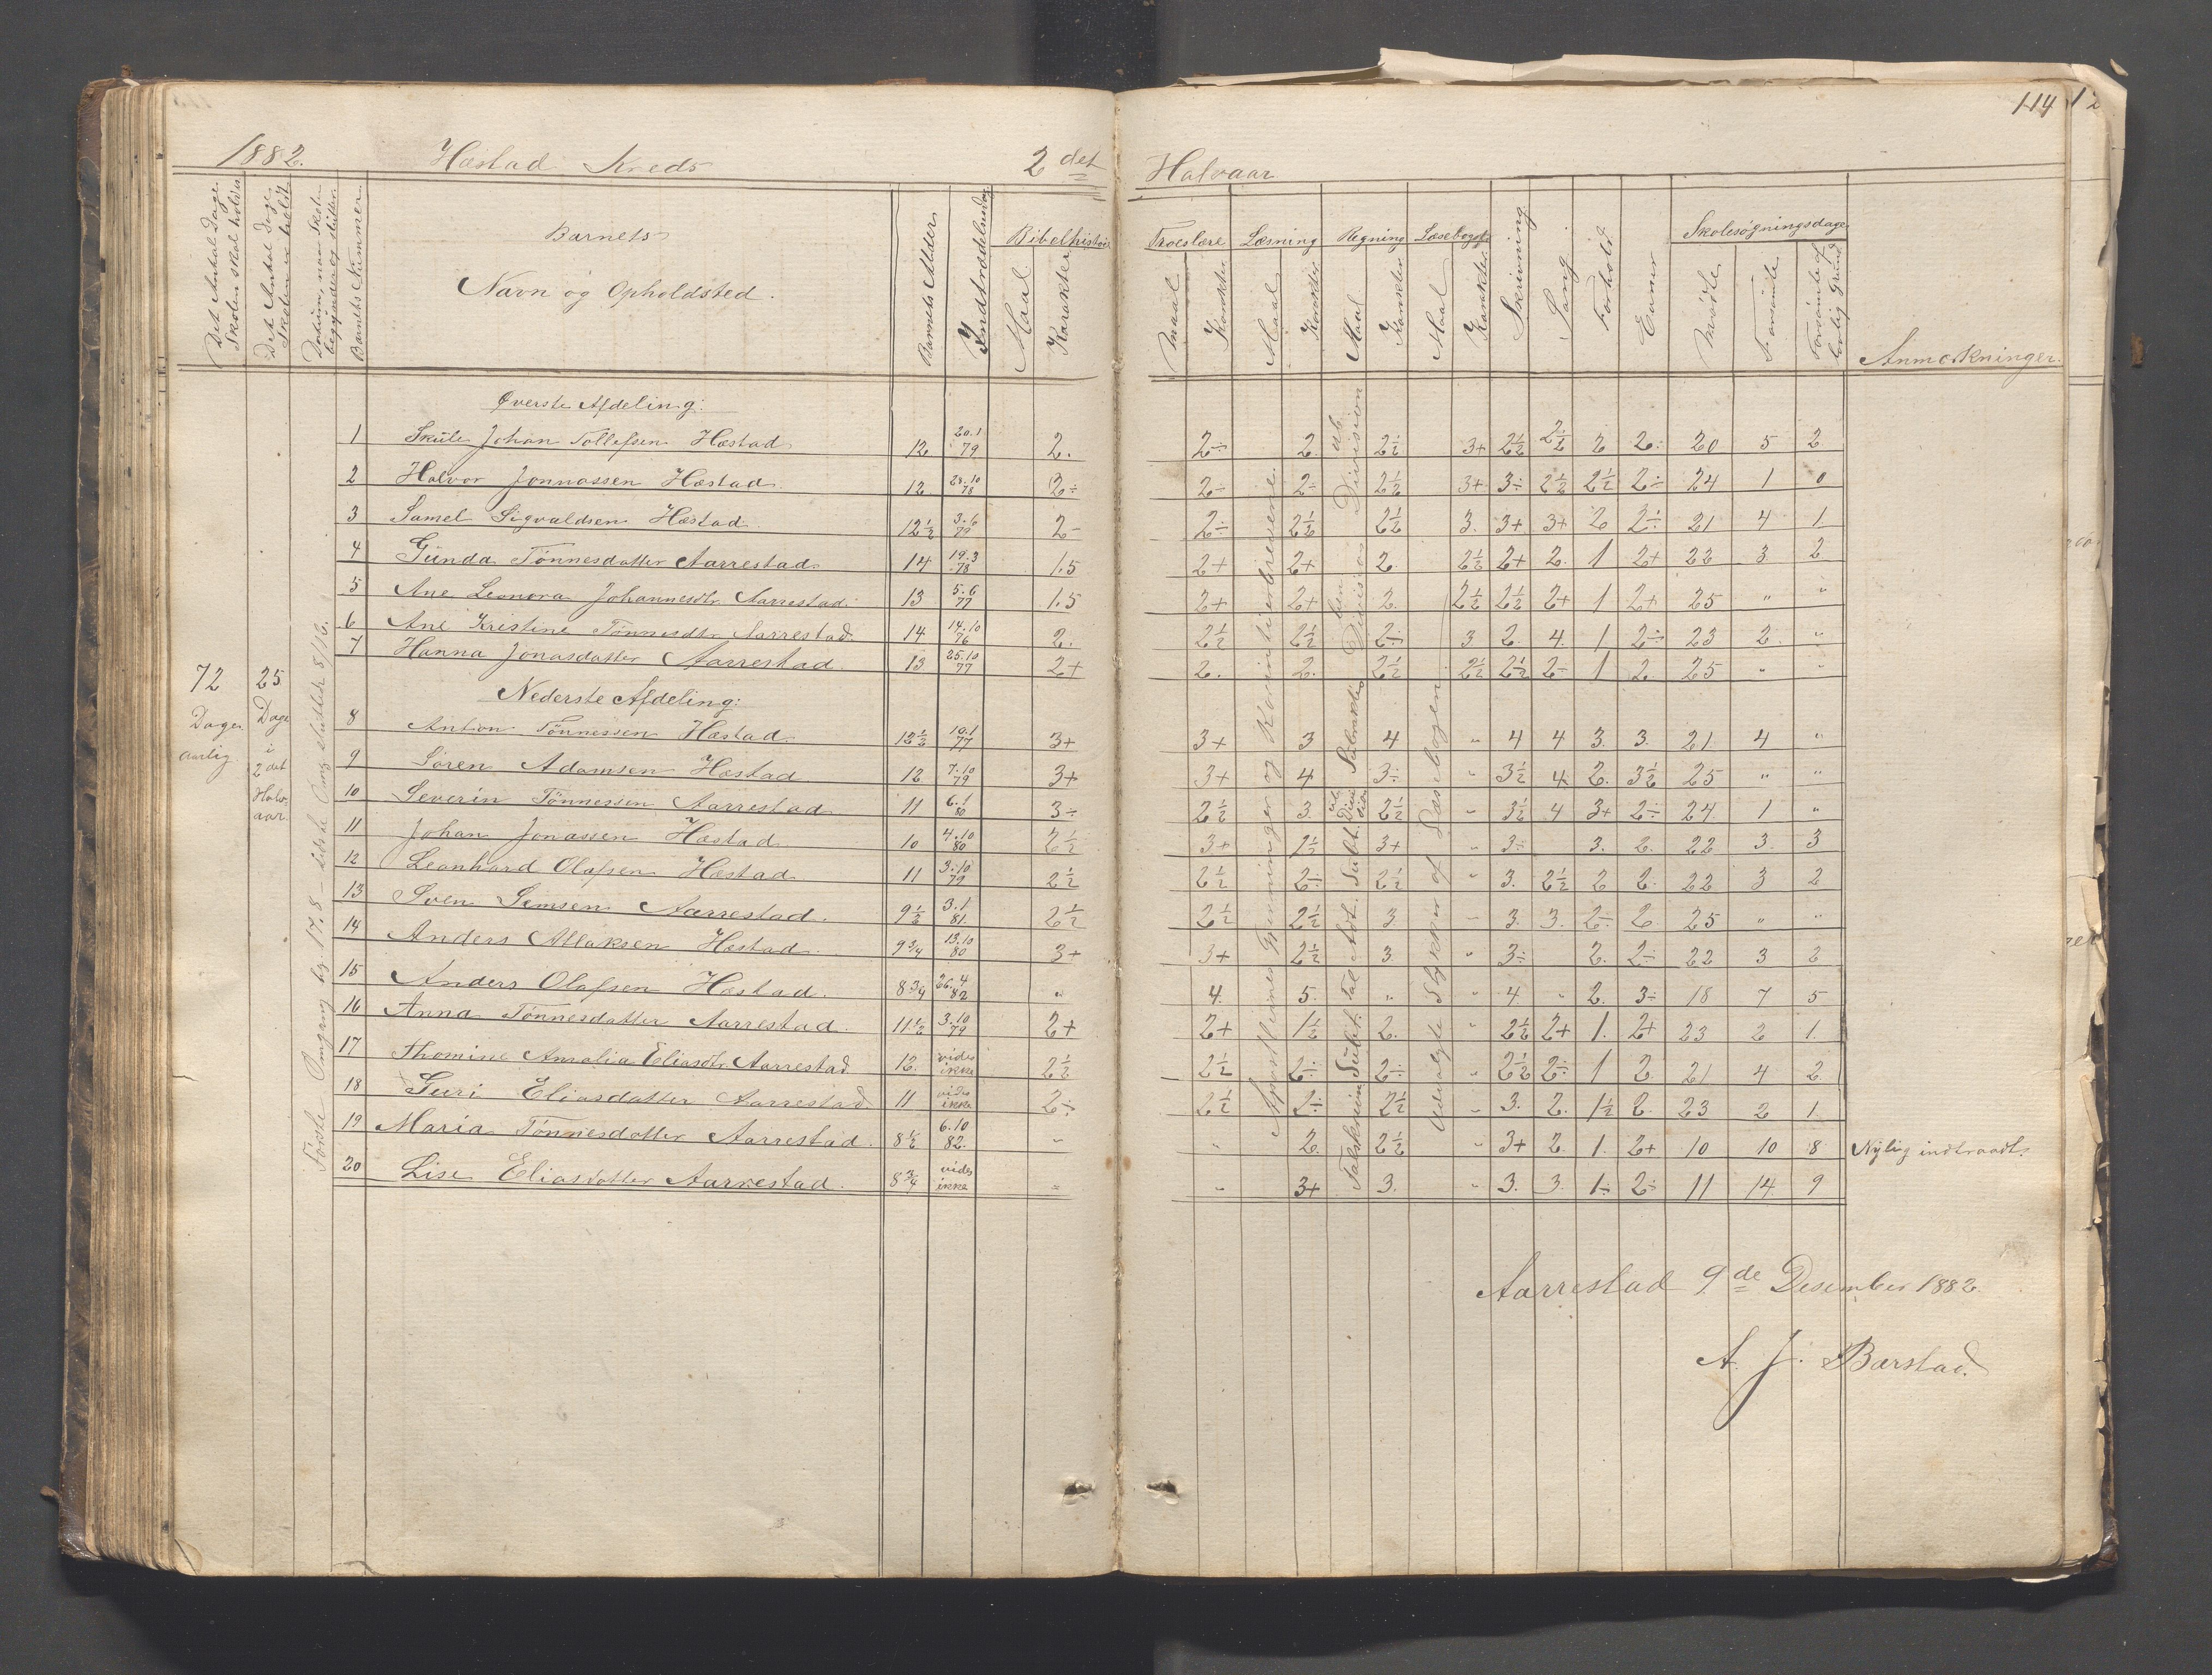 114
1882. Hæstad Kreds 2det Halvaar
Det Antal Dage Skolen skal holdes
Det Antal Dage Skolen er holdt
Datum, naar Skolen begynder og slutter
Barnets Nummer
Barnets Navn og Opholdsted.
Barnets Alder
Indtrædelsesdag
Bibelhistorie Maal Karakter
Troeslære Maal Karakter
Læsning Maal Karakter
Regning Maal Karakter
Læsebogen Maal Karakter
Skrivning
Sang
Forhold
Evner
Skolesøgningsdage Mødte Forsømte Forsømte af lovlig Grund
Anmærkninger.
72 Dage aarlig
25 Dage i 2det Halvaar
Første Omgang beg. 17.8 – sidste Omg. sluttede 8/12.
Øverste Afdeling:
1 Skule Johan Tollefsen Hæstad 12 20.1 79 2. 2÷ 2. 2½ 3+ 2½ 2½ 2 2÷ 20 5 2
2 Halvor Jonnassen Hæstad 12 28.10 78 2÷ 2÷ 2÷ 2½ 3+ 3÷ 2½ 2½ 2÷ 24 1 0
3 Samel Sigvaldsen Hæstad 12½ 3.6 79 2÷ 2÷ 2½ 2½ 3. 3+ 3+ 2 2÷ 21 4 1
4 Gunda Tønnesdatter Aarrestad 14 19.3 78 1.5 2+ 2+ 2. 2½ 2+ 2. 1 2+ 22 3 2
5 Ane Leonora Johannesdtr Aarrestad 13 5.6 77 1.5 2+ 2+ 2. 2½ 2½ 2+ 1 2+ 25 " "
6 Ane Kristine Tønnesdtr Aarrestad 14 14.10 76 2. 2½ 2½ 2÷ 3 2. 4. 1 2÷ 23 2 "
7 Hanna Jonasdatter Aarrestad 13 25.10 77 2+ 2. 2. 2½ 2½ 2½ 2÷ 1 2. 25 " "
Nederste Afdeling:
8 Anton Tønnessen Hæstad 12½ 10.1 77 3+ 3+ 3 4 " 4 4 3. 3. 21 4 "
9 Søren Adamsen Hæstad 12 7.10 79 3+ 3+ 4 3÷ " 3½ 4. 2. 3½ 25 " "
10 Severin Tønnessen Aarrestad 11 6.1 80 3÷ 2½ 3. 2½ " 3½ 4 3+ 2÷ 24 1 "
11 Johan Jonassen Hæstad 10 4.10 80 2½ 3+ 2½ 3+ " 3÷ 3. 2. 22 3. 3
12 Leonhard Olafsen Hæstad 11 3.10 79 2½ 2½ 2÷ 2½ " 3. 2½ 2 2. 22 3 2
13 Sven Semsen Aarrestad. 9½ 3.1 81. 2½ 2½ 2½ 3. " 3. 3. 2÷ 2. 25 " "
14 Anders Atlaksen Hæstad. 9¾ 13.10 80 3+ 3+ 2½ 3. " 3÷ 2. 2÷ 22 3 2
15 Anders Olafsen Hæstad. 8¾ 26.4 82 " 4. 5. " " 4. " 2. 3÷ 18 7 5
16 Anna Tønnesdatter Aarrestad. 11½ 3.10 79 2+ 2+ 1½ 2. " 2½ 2+ 1. 2+ 23 2 1.
17 Thomine Amalia Eliasdtr Aarrestad 12. vides ikke 2½ 2½ 2÷ 2÷ " 2½ 2÷ 1 2. 21 4 2
18 Guri Eliasdatter Aarrestad 11 vides ikke 2÷ 2½ 2÷ 2½ " 3. 2. 1½ 2. 23 2 1
19 Maria Tønnesdatter Aarrestad. 8½ 6.10 82. " " 2. 2½ " 3+ 2. 1. 2+ 10 10 8 Nylig indtraadt.
20 Lise Eliasdatter Aarrestad. 8¾ vides ikke " " 3+ 3. " 3. 3. 1÷ 2÷ 11 14 9
Apostlernes Gjerninger og Korintierbrevene.
Udvalgte Stykker af Læsebogen.
Aarrestad 9de Desember 1882.
A. J. Barstad.